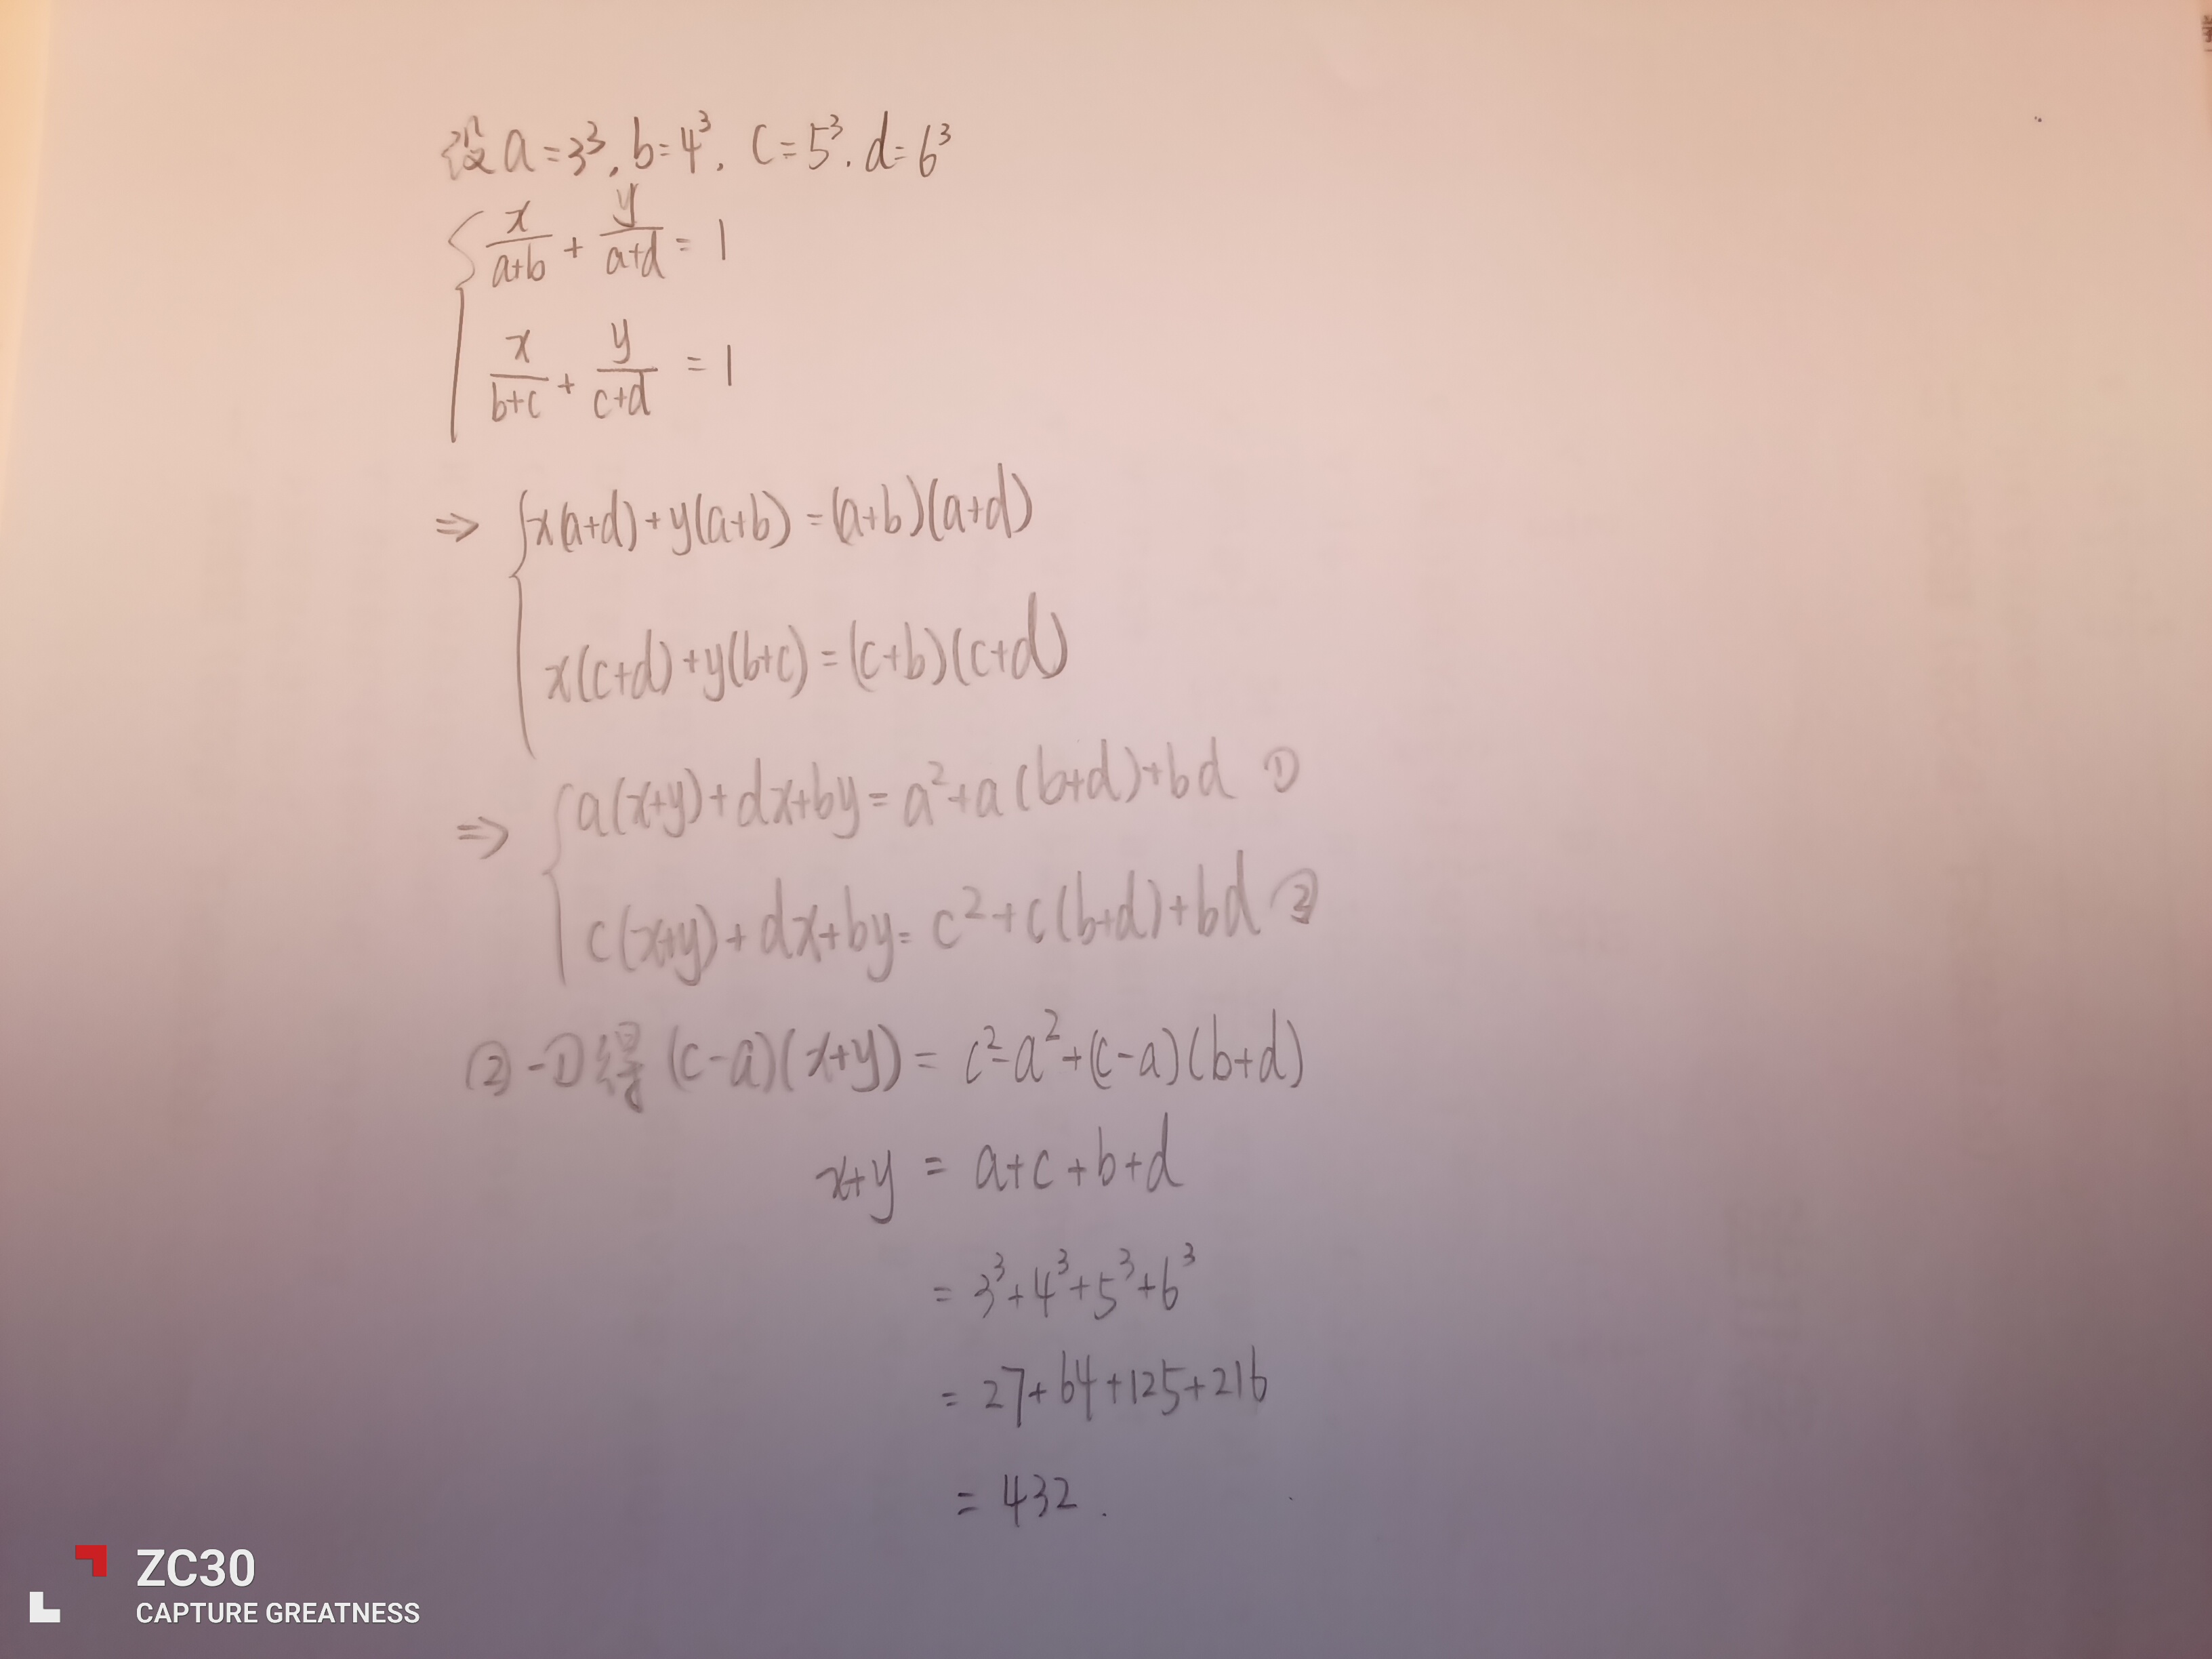 设a=3³,b=4³,c=5³.d=6³
x/(a+b) + y/(a+d) = 1
x/(b+c) + y/(c+d) = 1
⇒ x(a+d)+y(a+b)=(a+b)(a+d)
x(c+d)+y(b+c)=(c+b)(c+d)
⇒ a(x+y)+dx+by=a²+a(b+d)+bd ①
c(x+y)+dx+by=c²+c(b+d)+bd ②
②-①得(c-a)(x+y)=c²-a²+(c-a)(b+d)
x+y=a+c+b+d
=3³+4³+5³+6³
=27+64+125+216
=432.
ZC30
CAPTURE GREATNESS